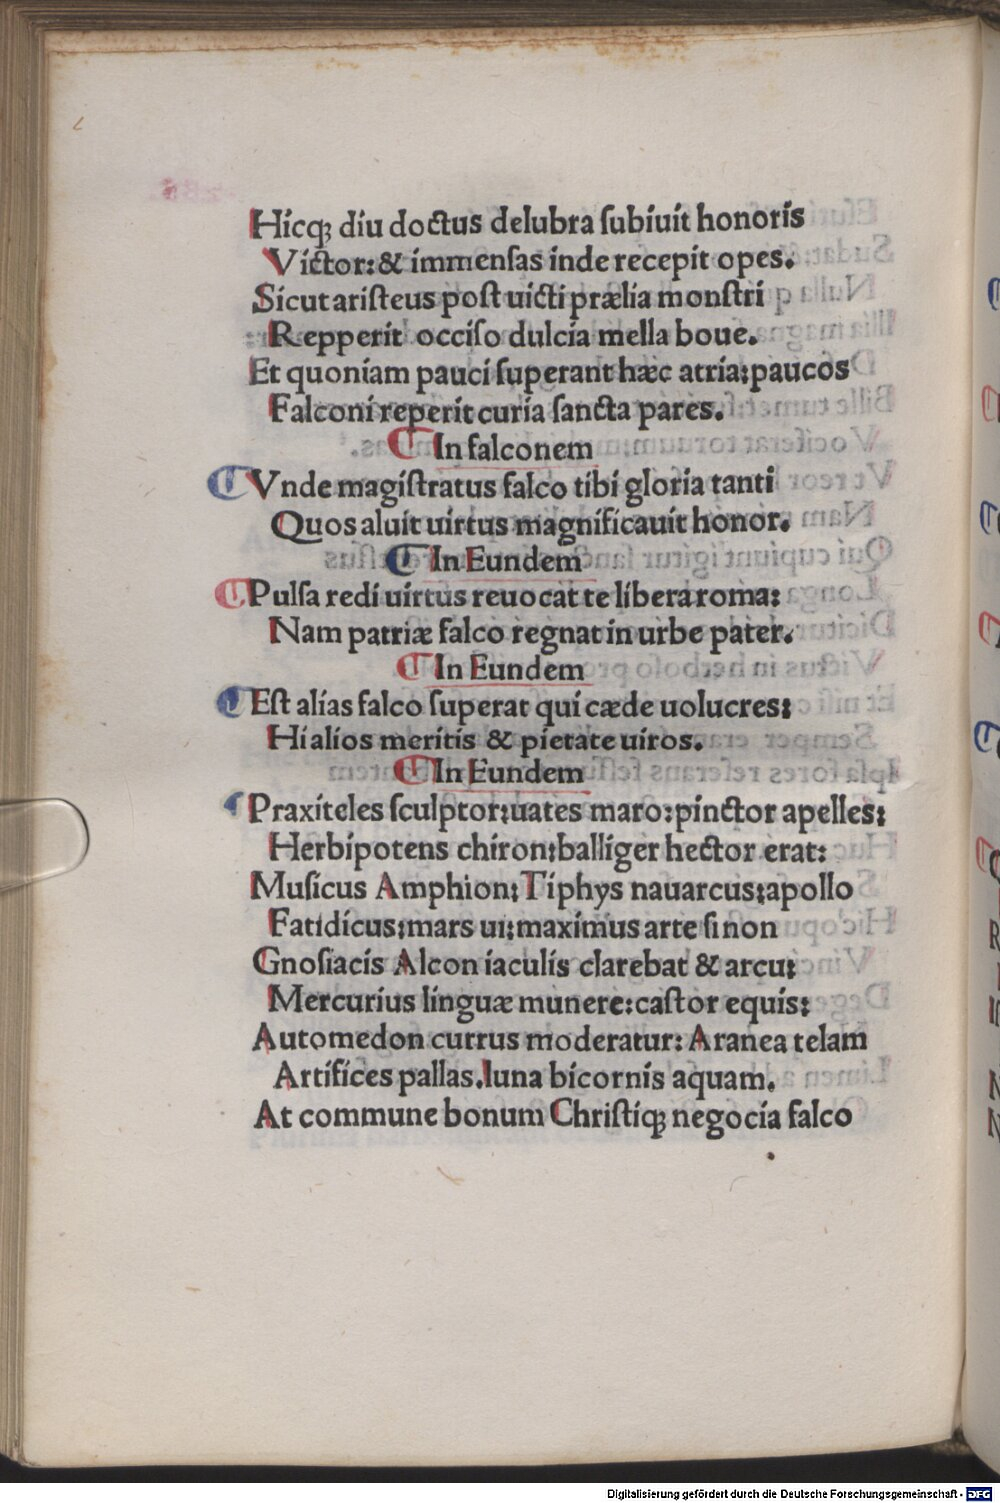 Hicq; diu doctus delubra ſubiuit honoris
Victor: & immenſas inde recepit opes.
Sicut ariſteus poſt uicti prælia monſtri
Repperit occiſo dulcia mella boue.
Et quoniam pauci ſuperant hæc atria: paucos
Falconi reperit curia ſancta pares.
In falconem
Vnde magiſtratus falco tibi gloria tanti
Quos aluit uirtus magnificauit honor.
In Eundem
Pulſa redi uirtus reuocat te libera roma:
Nam patriæ falco regnat in urbe pater.
In Eundem
Eſt alias falco ſuperat qui cæde uolucres:
Hi alios meritis & pietate uiros.
In Eundem
Praxiteles ſculptor: uates maro: pinctor apelles:
Herbipotens chiron: balliger hector erat:
Muſicus Amphion: Tiphys nauarcus: apollo
Fatidicus: mars ui: maximus arte ſinon
Gnoſiacis Alcon iaculis clarebat & arcu:
Mercurius linguæ munere: caſtor equis:
Automedon currus moderatur: Aranea telam
Artifices pallas. luna bicornis aquam.
At commune bonum Chriſtiq; negocia falco
Digitalisierung gefördert durch die Deutsche Forschungsgemeinschaft - DFG